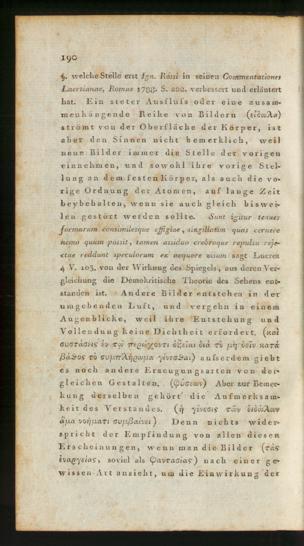 190
§. welche Stelle erst Ign. Rossi in seinen Commentationes
Laertianae, Romae 1788. S. 222. verbessert und erläutert
hat. Ein steter Ausfluſs oder eine zusam-
menhängende Reihe von Bildern (εἴδωλα)
strömt von der Oberfläche der Körper, ist
aber den Sinnen nicht bemerklich, weil
neue Bilder immer die Stelle der vorigen
einnehmen, und sowohl ihre vorige Stel-
lung an dem festen Körper, als auch die vo-
rige Ordnung der Atomen, auf lange Zeit
beybehalten, wenn sie auch gleich biswei-
len gestört werden sollte. Sunt igitur tenues
formarum consimilesque effigiae, singillatim quas cernere
nemo quum possit, tamen assiduo crebroque repulsu reje-
ctae reddunt speculorum ex aequore visum sagt Lucrez
4 V. 103. von der Wirkung des Spiegels, aus deren Ver-
gleichung die Demokritische Theorie des Sehens ent-
standen ist. Andere Bilder entstehen in der
umgebenden Luft, und vergehn in einem
Augenblicke, weil ihre Entstehung und
Vollendung keine Dichtheit erfordert. (καὶ
συστάσεις ἐν τῷ περιέχοντι ὀξεῖαι διὰ τὸ μὴ δεῖν κατὰ
βάθος τὸ συμπλήρωμα γίνεσθαι) auſserdem giebt
es noch andere Erzeugungsarten von der-
gleichen Gestalten. (φύσεων) Aber zur Bemer-
kung derselben gehört die Aufmerksam-
keit des Verstandes. (ἡ γένεσις τῶν εἰδώλων
ἅμα νοήματι συμβαίνει) Denn nichts wider-
spricht der Empfindung von allen diesen
Erscheinungen, wenn man die Bilder (τὰς
ἐναργείας, soviel als φαντασίας) nach einer ge-
wissen Art ansieht, um die Einwirkung der